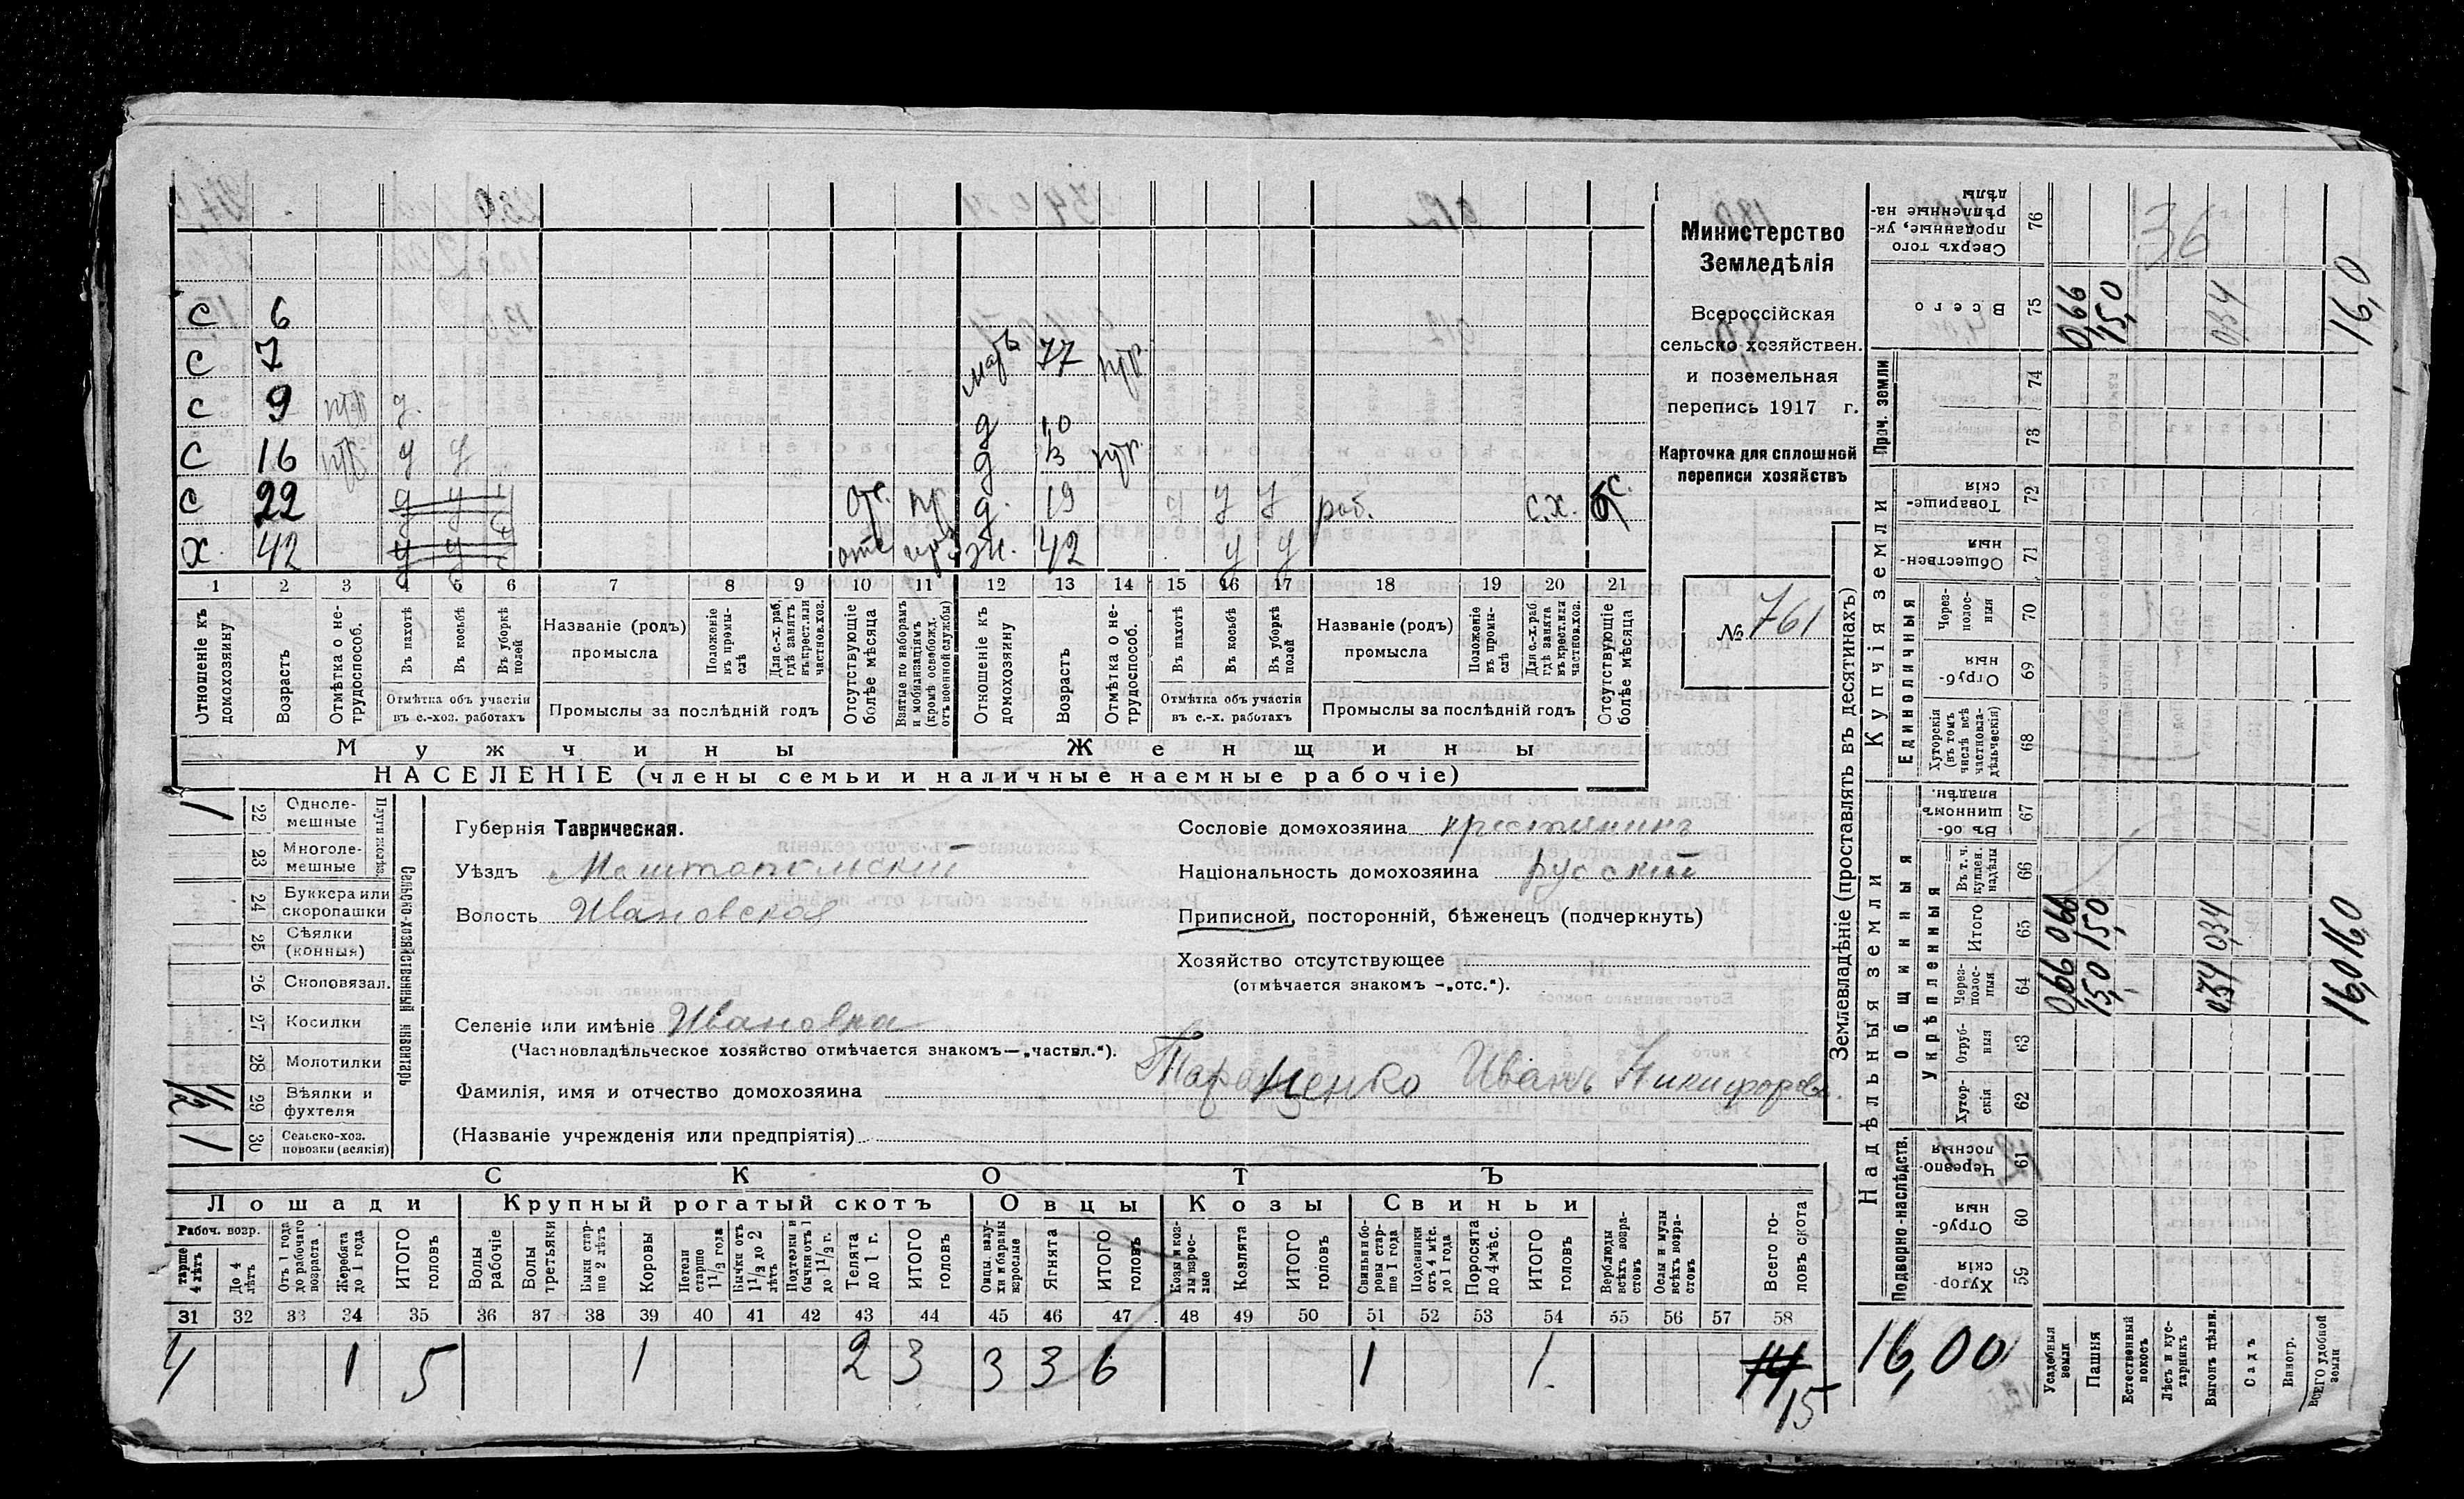 С 6
С 7 мать 77 нтр.
С 9 нтр д.
д 10
С 16 нтр у у
д 13 нтр.
С 22 у у у отс. пр д. 19 у у у раб. с.х. отс.
Х. 42 у у у отс приз ж. 42 у у
1 2 3 4 5 6 7 8 9 10 11 12 13 14 15 16 17 18 19 20 21
Отношеніе къ домохозяину
Возрастъ
Отмѣтка о не-
трудоспособ.
Въ пахотѣ
Въ косьбѣ
Въ уборкѣ
полей
Отмѣтка объ участіи
въ с.-хоз. работахъ
Названіе (родъ)
промысла
Положеніе
въ промы-
слѣ
Для с.-х. раб.
гдѣ занятъ
въ крест. или
частнов. хоз.
Промыслы за послѣдній годъ
Отсутствующіе
болѣе мѣсяца
Взятые по наборамъ
и мобилизаціямъ
(кромѣ освобожд.
отъ военной службы)
Отношеніе къ
домохозяину
Возрастъ
Отмѣтка о не-
трудоспособ.
Въ пахотѣ
Въ косьбѣ
Въ уборкѣ
полей
Отмѣтка объ участіи
въ с.-х. работахъ
Названіе (родъ)
промысла
Положеніе
въ промы-
слѣ
Для с.-х. раб.
гдѣ занята
въ крест. или
частнов. хоз.
Промыслы за послѣдній годъ
Отсутствующіе
болѣе мѣсяца
Мужчины
Женщины
НАСЕЛЕНІЕ (члены семьи и наличные наемные рабочіе)
Министерство
Земледѣлія
Всероссійская
сельско хозяйствен.
и поземельная
перепись 1917 г.
Карточка для сплошной
переписи хозяйствъ
№ 761
Сельско-хозяйственный инвентарь
1 22 Однолемешные
23 Многолемешные
24 Буккера или
скоропашки
25 Сѣялки
(конныя)
26 Сноповязал.
27 Косилки
28 Молотилки
1/2 29 Вѣялки и
фухтеля
1 30 Сельско-хоз.
повозки (всякія)
Губернія Таврическая.
Уѣздъ Мелитопольскій
Волость Ивановская
Селеніе или имѣніе Ивановка
(Частновладѣльческое хозяйство отмѣчается знакомъ—„частвл.“).
Фамилія, имя и отчество домохозяина Таращенко Иванъ Никифоров.
(Названіе учрежденія или предпріятія)
Сословіе домохозяина крестьянинъ
Національность домохозяина русскій
Приписной, посторонній, бѣженецъ (подчеркнуть)
Хозяйство отсутствующее
(отмѣчается знакомъ -„отс.“).
СКОТЪ
Лошади Крупный рогатый скотъ Овцы Козы Свиньи
Рабоч. возр.
тарше
4 лѣтъ
До 4
лѣтъ
Отъ 1 года
до рабочаго
возраста
Жеребята
до 1 года
ИТОГО
головъ
Волы
рабочіе
Волы
третьяки
Быки стар-
ше 2 лѣтъ
Коровы
Нетели
старше
1 1/2 года
Бычки отъ
1 1/2 до 2
лѣтъ
Подтелки и
бычки отъ 1
до 1 1/2 г.
Телята
до 1 г.
ИТОГО
головъ
Овцы, валу-
хи и бараны
взрослые
Ягнята
ИТОГО
головъ
Козы и коз-
лы взрос-
лые
Козлята
ИТОГО
головъ
Свиньи и бо-
ровы стар-
ше 1 года
Подсвинки
отъ 4 мѣс.
до 1 года
Поросята
до 4 мѣс.
ИТОГО
головъ
Верблюды
всѣхъ возра-
стовъ
Ослы и мулы
всѣхъ возра-
стовъ
Всего го-
ловъ скота
31 32 33 34 35 36 37 38 39 40 41 42 43 44 45 46 47 48 49 50 51 52 53 54 55 56 57 58
4 1 5 1 2 3 3 3 6 1 1. 14
15
Землевладѣніе (проставлять въ десятинахъ)
Надѣльныя земли
Купчія земли
Проч. земли
Подворно-наслѣдств.
Общинныя
Укрѣпленныя
Единоличныя
Хутор-
скія 59
Отруб-
ныя 60
Черезпо-
лосныя 61
Хутор-
скія 62
Отруб-
ныя 63
Через-
полос-
ныя 64
Итого 65
Въ т. ч.
куплен.
надѣлы 66
Въ об-
щинномъ
владѣн. 67
Хуторскія
(въ томъ
числѣ всѣ
частновла-
дѣльческія) 68
Отруб-
ныя 69
Через-
полос-
ныя 70
Обществен-
ныя 71
Товарище-
скія 72
73
74
Всего 75
Сверхъ того
проданные, ук-
рѣпленные на-
дѣлы 76
16,00
Усадебныя
земли 0,66 0,66 0,66
Пашня 15,0 15,0 15,0
Естественный
покосъ
Лѣсъ и кус-
тарникъ
Выгонъ цѣлин. 0,34 0,34 0,34
Садъ
Виногр.
ВСЕГО удобной
земли 16,0 16,0 16,0
36